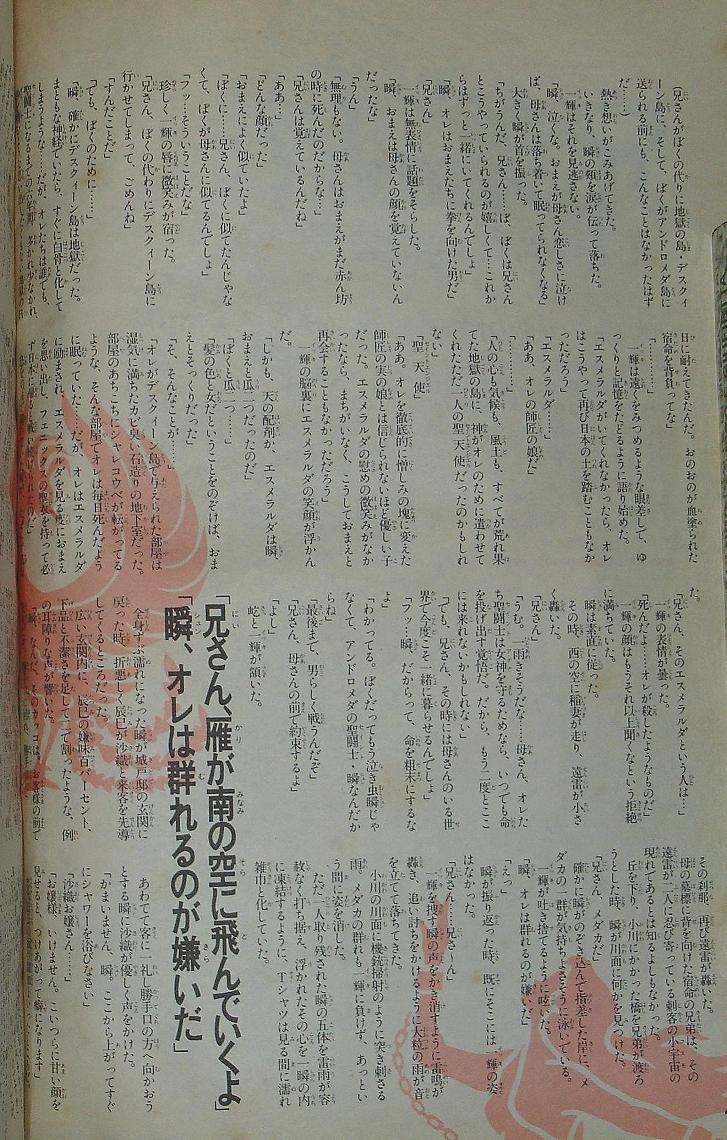 (兄さんがぼくの代りに地獄の島・デスクィ
ーン島に、そして、ぼくがアンドロメダ島に
送られる前にも、こんなことはなかったはず
だ……)
熱き想いがこみあげてきた。
いきなり、瞬の頬を涙が伝って落ちた。
一輝はそれを見逃さない。
「瞬、泣くな。おまえが母さん恋しさに泣け
ば、母さんは落ち着いて眠ってられなくなる」
大きく瞬が首を振った。
「ちがうんだ、兄さん……ぼ、ぼくは兄さん
とこうやっていられるのが嬉しくて…これか
らはずっと一緒にいてくれるんでしょ」
「瞬、オレはおまえたちに拳を向けた男だ」
「兄さん」
一輝は無表情に話題をそらした。
「瞬、おまえは母さんの顔を覚えていないん
だったな」
「うん」
「無理もない。母さんはおまえがまだ赤ん坊
の時に死んだのだからな…」
「兄さんは覚えているんだね」
「ああ…」
「どんな顔だった」
「おまえによく似ていたよ」
「ぼくに……兄さん、ぼくに似てたんじゃな
くて、ぼくが母さんに似てるんでしょ」
「フッ…そういうことだな」
珍しく、一輝の唇に微笑みが宿った。
「兄さん、ぼくの代わりにデスクィーン島に
行かせてしまって、ごめんね」
「すんだことだ」
「でも、ぼくのために……」
「瞬、確かにデスクィーン島は地獄だった。
まともな神経でいたら、すぐに白骨と化して
しまうような…だが、オレたちは誰でも、
聖闘士になるまでの六年間、多かれ少なかれ、
日に耐えてきたんだ。おのおのが血塗られた
宿命を背負ってな」
「…………」
一輝は遠くをみつめるような眼差して、ゆ
っくりと記憶をたどるように語り始めた。
「エスメラルダがいてくれなかったら、オレ
はこうやって再び日本の土を踏むこともなか
っただろう」
「エスメラルダ……」
「ああ、オレの師匠の娘だ」
「…………」
「人の心も気候も、風土も、すべてが荒れ果
てた地獄の島に、神がオレのために遣わせて
くれたただ一人の聖天使だったのかもしれ
ない」
「聖天使」
「ああ。オレを徹底的に憎しみの塊に変えた
師匠の実の娘とは信じられないほど優しい子
だった。エスメラルダの慰めの微笑みがなか
ったなら、まちがいなく、こうしておまえと
再会することもなかっただろう」
一輝の脳裏にエスメラルダの笑顔が浮かん
だ。
「しかも、天の配剤か、エスメラルダは瞬、
おまえと瓜二つだったのだ」
「ぼくと瓜二つ……」
「髪の色と女だということをのぞけば、おま
えとそっくりだった」
「そ、そんなことが…」
「オレがデスクィーン島で与えられた部屋は
湿気に満ちたカビ臭い石造りの地下室だった。
部屋のあちこちにシャレコウベが転がってる
ような、そんな部屋でオレは毎日死んだよう
に眠っていた……だが、オレはエスメラルダ
に励まされ、エスメラルダを見る度におまえ
を思い出し、フェニックスの聖衣を持って必
ず日本に帰ると
た。
「兄さん、そのエスメラルダという人は…」
一輝の表情が曇った。
「死んだよ……オレが殺したようなものだ」
一輝の顔はもうそれ以上聞くなという拒絶
に満ちていた。
瞬は素直に従った。
その時、西の空に稲妻が走り、遠雷が小さ
く轟いた。
「兄さん」
「うむ。一雨きそうだな……母さん、オレた
ち聖闘士は女神を守るためなら、いつでも命
を投げ出す覚悟だ。だから、もう二度とここ
には来れないかもしれない」
「でも、兄さん、その時には母さんのいる世
界で今度こそ一緒に暮らせるんでしょ」
「フッ…瞬、だからって、命を粗末にするな
よ」
「わかってる。ぼくだってもう泣き虫瞬じゃ
なくて、アンドロメダの聖闘士・瞬なんだか
らね」
「最後まで、男らしく戦うんだぞ」
「兄さん、母さんの前で約束するよ」
「よし」
屹と一輝が頷いた。
「兄さん、雁が南の空に飛んでいくよ」
「瞬、オレは群れるのが嫌いだ」
全身ずぶ濡れになった瞬が城戸邸の玄関に
戻った時、折悪しく辰巳が沙織と来客を先導
してくるところだった。
広い玄関内に、辰巳の嫌味百パーセント、
下品と不潔さを足して二で割ったような、例
の耳障りな声が響いた。
「瞬、なんだ、そのカッコは、お客様の前で
その刹那、再び遠雷が轟いた。
母の墓標に背を向けた宿命の兄弟は、その
遠雷が二人に忍び寄っている刺客の小宇宙の
現れであるとは知るよしもなかった。
丘を下り、小川にかかった橋を兄弟が渡ろ
うとした時、瞬が川面に何かを見つけた。
「兄さん、メダカだ」
確かに瞬がのぞき込んで指差した岸に、メ
ダカの一群が気持ちよさそうに泳いでいる。
一輝が吐き捨てるように呟いた。
「瞬、オレは群れるのが嫌いだ」
「えっ」
瞬が振り返った時、既にそこには一輝の姿
はなかった。
「兄さん……兄さ～ん」
一輝を捜す瞬の声をかき消すように雷鳴が
轟き、追い討ちをかけるように大粒の雨が音
を立てて落ちてきた。
小川の川面に機銃掃射のように突き刺さる
雨。メダカの群れも一輝に負けず、あっとい
う間に姿を消した。
ただ一人取り残された瞬の五体を雷雨が容
赦なく打ち据え、浮かれたその心を一瞬の内
に凍結するように、Tシャツは見る間に濡れ
雑巾と化していた。
あわてて客に一礼し勝手口の方へ向かおう
とする瞬に沙織が優しく声をかけた。
「かまいません、瞬。ここから上がってすぐ
にシャワーを浴びなさい」
「沙織お嬢さん……」
「お嬢様、いけません。こいつらに甘い顔を
見せると、つけあがって癖になります」